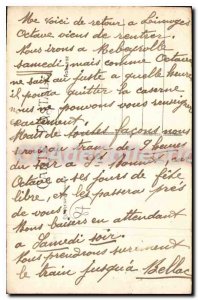 Me voici de retour a Limoges
Octave viens de rentrer.
Nous irons a
samedi, mais comme Octave
ne sait au juste a quelle heure
il pourra quitter la caserne
nous ne pouvons vous renseigner
exactement.
de toutes façons nous
train de 9 heures
du soir
Octave a ses jours de fête
libre, et les passeras près
de vous.
Mons baisers en attendant
a Samedi soir.
nous prendrons surement
le train jusqu'à Bellac